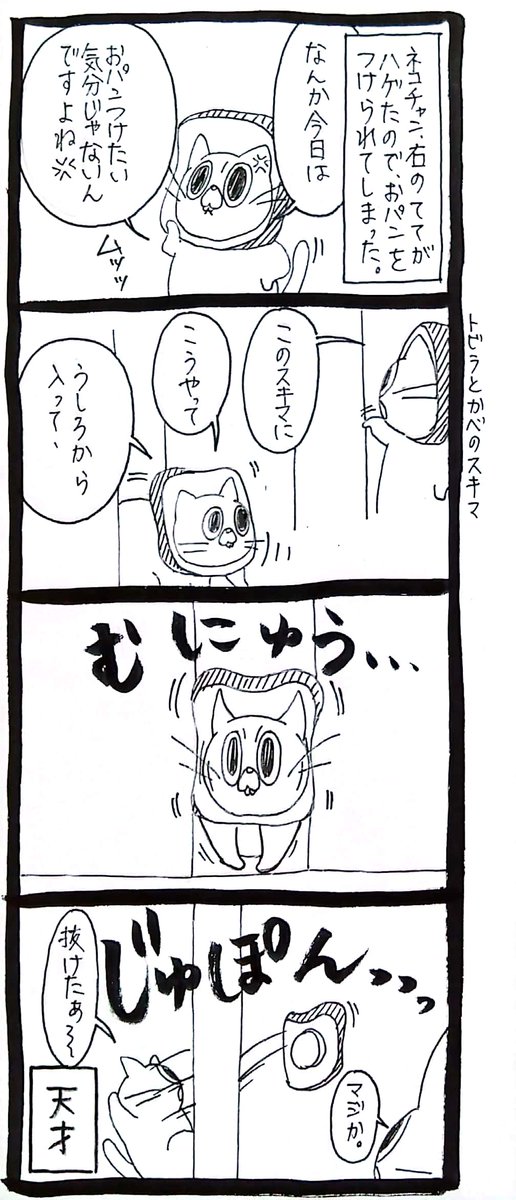 ネコチャン、右のててが
ハゲたので、おパンを
つけられてしまった。
なんか今日は
おパンつけたい
気分じゃないん
ですよね
ムッッ
トビラとかべのスキマ
このスキマに
こうやって
うしろから
入って、
むにゅう...
じゅぽんっっっ
抜けたぁ〜
マジか。
天才